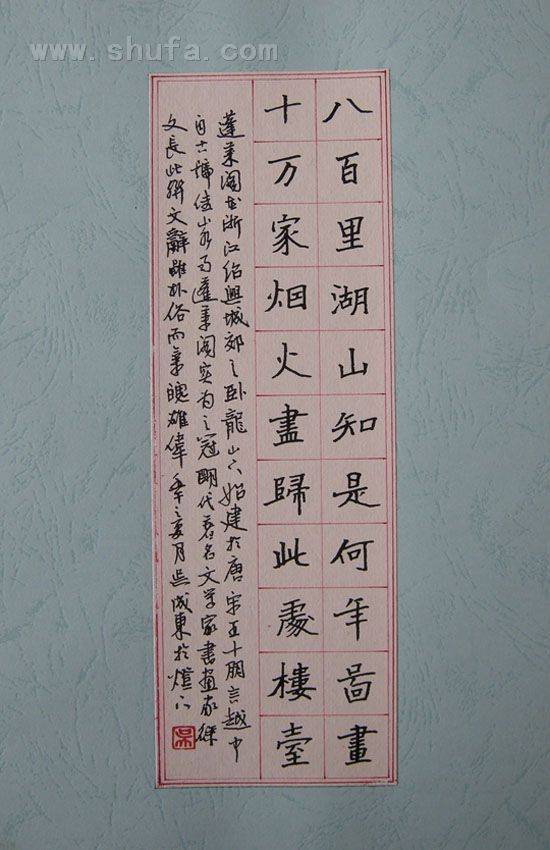 www.shufa.com
八百里湖山知是何年啚畫
十万家烟火盡歸此處樓臺
蓬莱阁在浙江绍興城郊之卧龍山下始建於唐宋王十朋言越中
自古號佳山水而蓬莱阁实为之冠明代著名文学家書画家徐
文長此聯文辭雖朴俗而氣魄雄偉之夏月吴成東於燈下
吴